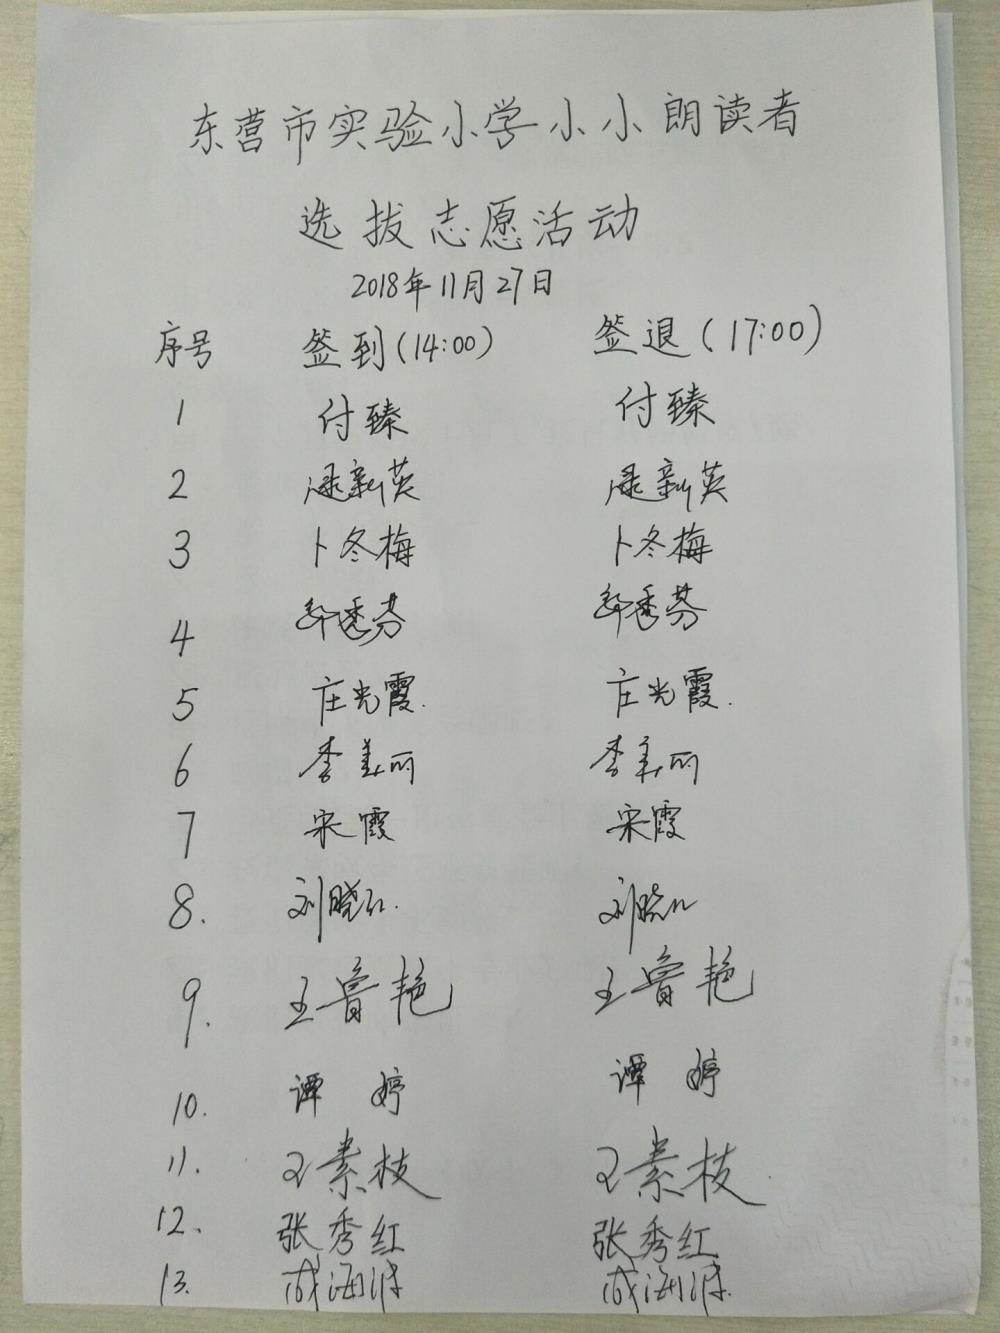 东营市实验小学小小朗读者
选拔志愿活动
2018年11月27日
序号 签到(14:00) 签退(17:00)
1 付臻 付臻
2 新英 新英
3 卜冬梅 卜冬梅
4 秀芬 秀芬
5 庄光霞. 庄光霞.
6 李美丽 李美丽
7 宋霞 宋霞
8. 刘晓红. 刘晓红
9. 王鲁艳 王鲁艳
10. 谭婷 谭婷
11. 王素枝 王素枝
12. 张秀红 张秀红
13. 成海 成海